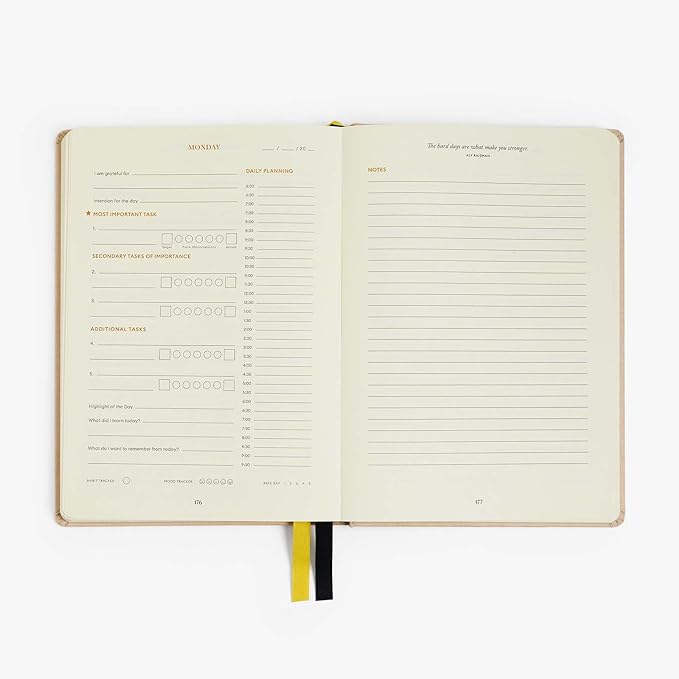 MONDAY
/ / 20
I am grateful for
Intention for the day
★ MOST IMPORTANT TASK
1.
Target
Actual
SECONDARY TASKS OF IMPORTANCE
2.
3.
ADDITIONAL TASKS
4.
5.
Highlight of the Day
What did I learn today?
What do I want to remember from today?
HABIT TRACKER
MOOD TRACKER
176
DAILY PLANNING
6:00
6:30
7:00
7:30
8:00
8:30
9:00
9:30
10:00
10:30
11:00
11:30
12:00
12:30
1:00
1:30
2:00
2:30
3:00
3:30
4:00
4:30
5:00
5:30
6:00
6:30
7:00
7:30
8:00
8:30
9:00
9:30
RATE DAY
The hard days are what make you stronger.
ALY RAISMAN
NOTES
177